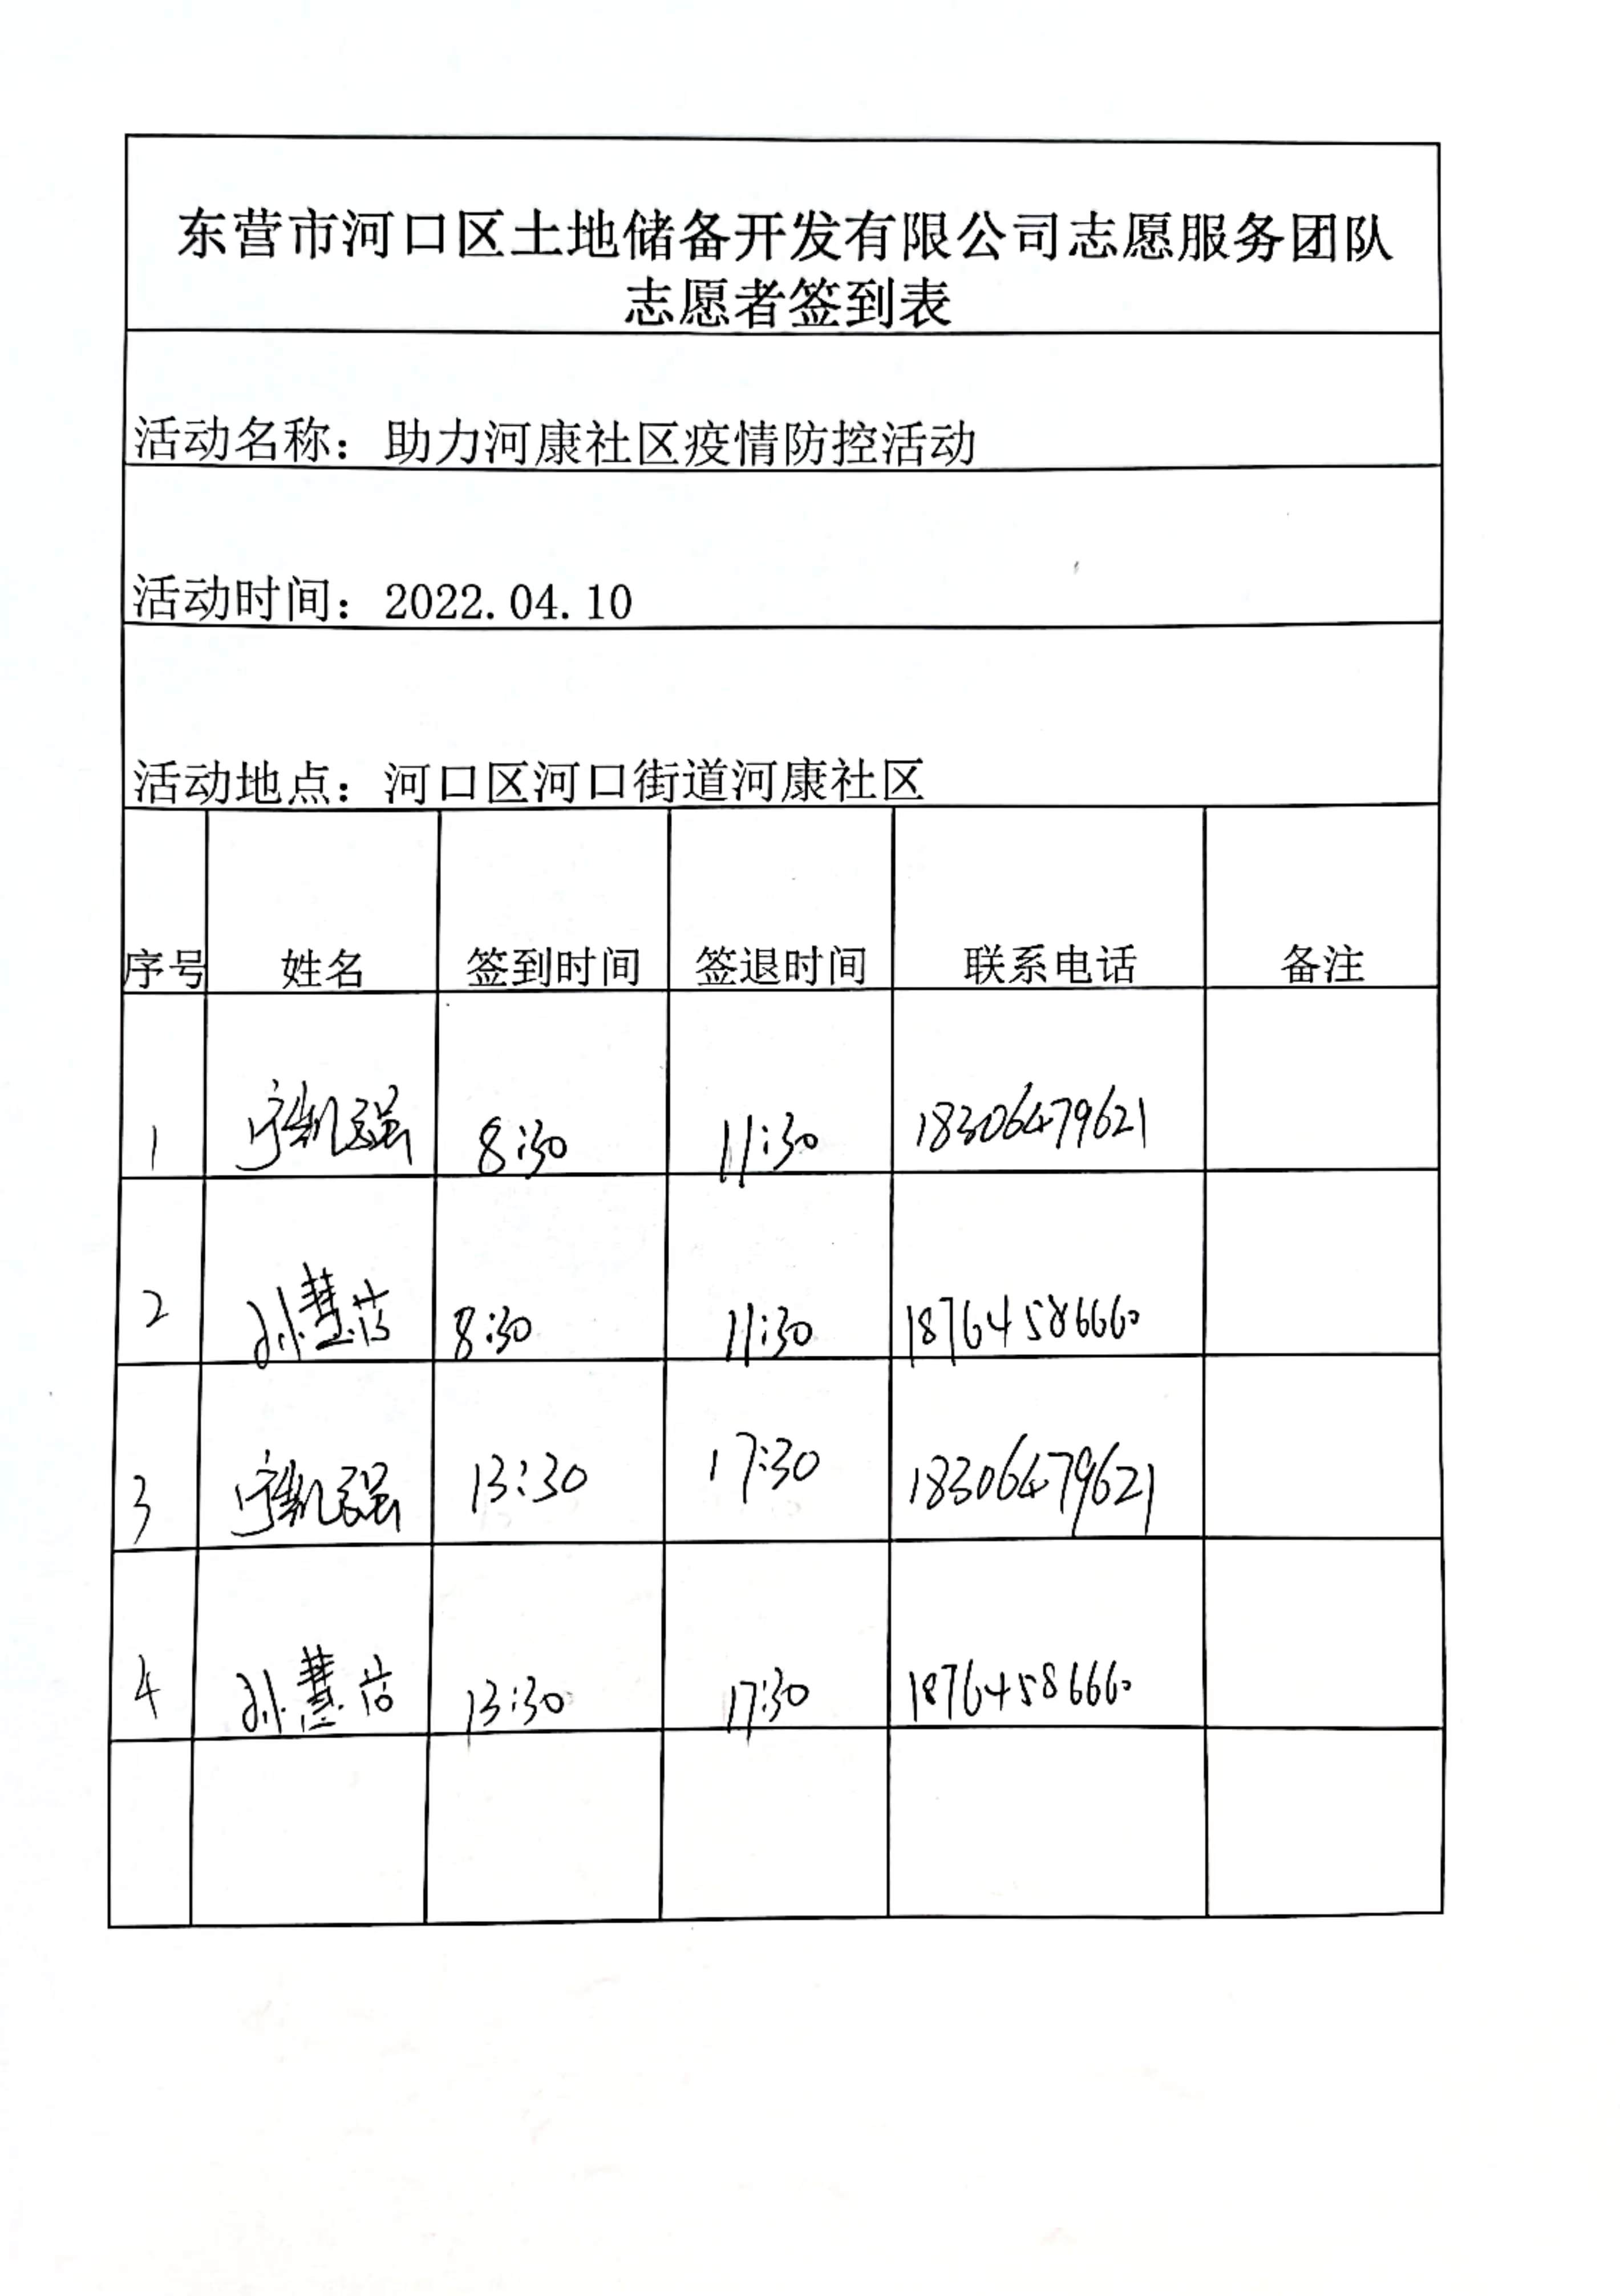 东营市河口区土地储备开发有限公司志愿服务团队
志愿者签到表
活动名称：助力河康社区疫情防控活动
活动时间：2022.04.10
活动地点：河口区河口街道河康社区
序号 姓名 签到时间 签退时间 联系电话 备注
1 8:30 11:30 18306479621
2 孙慧 8:30 11:30 18764586660
3 13:30 17:30 18306479621
4 孙慧 13:30 17:30 18764586660